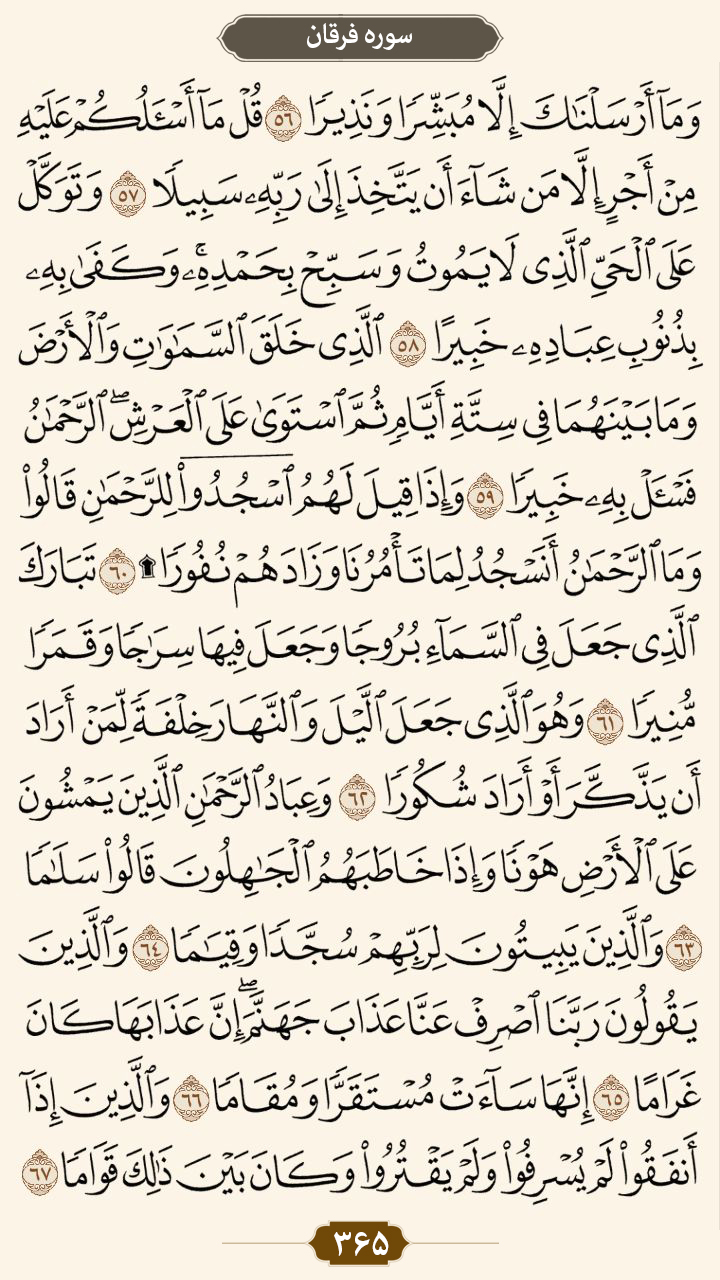 سوره فرقان
وَمَآ أَرْسَلْنَٰكَ إِلَّا مُبَشِّرًا وَنَذِيرًا ٥٦ قُلْ مَآ أَسْـَٔلُكُمْ عَلَيْهِ
مِنْ أَجْرٍ إِلَّا مَن شَآءَ أَن يَتَّخِذَ إِلَىٰ رَبِّهِۦ سَبِيلًا ٥٧ وَتَوَكَّلْ
عَلَى ٱلْحَىِّ ٱلَّذِى لَا يَمُوتُ وَسَبِّحْ بِحَمْدِهِۦۚ وَكَفَىٰ بِهِۦ
بِذُنُوبِ عِبَادِهِۦ خَبِيرًا ٥٨ ٱلَّذِى خَلَقَ ٱلسَّمَٰوَٰتِ وَٱلْأَرْضَ
وَمَا بَيْنَهُمَا فِى سِتَّةِ أَيَّامٍ ثُمَّ ٱسْتَوَىٰ عَلَى ٱلْعَرْشِۖ ٱلرَّحْمَٰنُ
فَسْـَٔلْ بِهِۦ خَبِيرًا ٥٩ وَإِذَا قِيلَ لَهُمُ ٱسْجُدُوا۟ لِلرَّحْمَٰنِ قَالُوا۟
وَمَا ٱلرَّحْمَٰنُ أَنَسْجُدُ لِمَا تَأْمُرُنَا وَزَادَهُمْ نُفُورًا ۩ ٦٠ تَبَارَكَ
ٱلَّذِى جَعَلَ فِى ٱلسَّمَآءِ بُرُوجًا وَجَعَلَ فِيهَا سِرَٰجًا وَقَمَرًا
مُّنِيرًا ٦١ وَهُوَ ٱلَّذِى جَعَلَ ٱلَّيْلَ وَٱلنَّهَارَ خِلْفَةً لِّمَنْ أَرَادَ
أَن يَذَّكَّرَ أَوْ أَرَادَ شُكُورًا ٦٢ وَعِبَادُ ٱلرَّحْمَٰنِ ٱلَّذِينَ يَمْشُونَ
عَلَى ٱلْأَرْضِ هَوْنًا وَإِذَا خَاطَبَهُمُ ٱلْجَٰهِلُونَ قَالُوا۟ سَلَٰمًا
٦٣ وَٱلَّذِينَ يَبِيتُونَ لِرَبِّهِمْ سُجَّدًا وَقِيَٰمًا ٦٤ وَٱلَّذِينَ
يَقُولُونَ رَبَّنَا ٱصْرِفْ عَنَّا عَذَابَ جَهَنَّمَۖ إِنَّ عَذَابَهَا كَانَ
غَرَامًا ٦٥ إِنَّهَا سَآءَتْ مُسْتَقَرًّا وَمُقَامًا ٦٦ وَٱلَّذِينَ إِذَآ
أَنفَقُوا۟ لَمْ يُسْرِفُوا۟ وَلَمْ يَقْتُرُوا۟ وَكَانَ بَيْنَ ذَٰلِكَ قَوَامًا ٦٧
۳۶۵